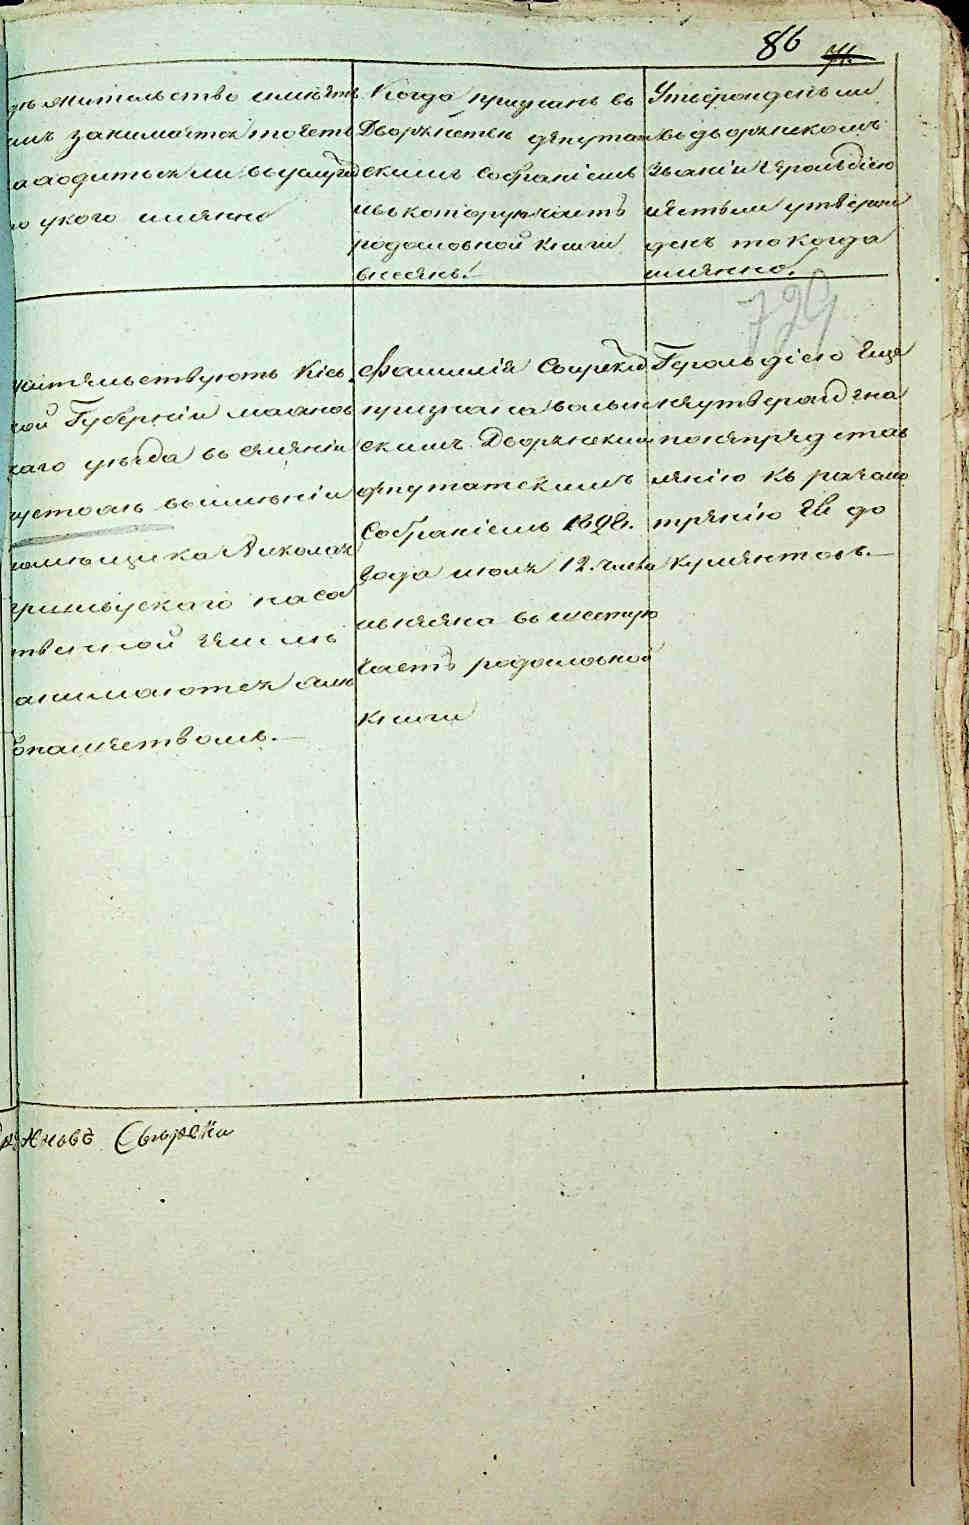 86 71.
дѣ жительство имѣетъ
чемъ занимается то есть
находиться ли въ услуге
и у кого имянно
Когда признанъ въ
Дворянствѣ депутат
скимъ Собраніемъ
и въ которую часть
родословной книги
внесенъ.
Утвержденъ ли
въ дворянскомъ
званіи Герольдіею
и естьли утверж
денъ то когда
имянно.
729
жительствуютъ Кіев
кой Губерніи
каго уѣзда въ
въ имѣніи
помѣщика Николая
на соб
твенной земле
занимаются
хлѣбопашествомъ.
Фамилія
признана Волын
скимъ Дворянским
депутатскимъ
Собраніемъ 182
года июля 12. числа
и внесена въ шестую
часть родословной
книги
Герольдіею еще
не утверждена
по непредстав
ленію къ разсмо
трѣнію Ея до
кументовъ.
Свирски